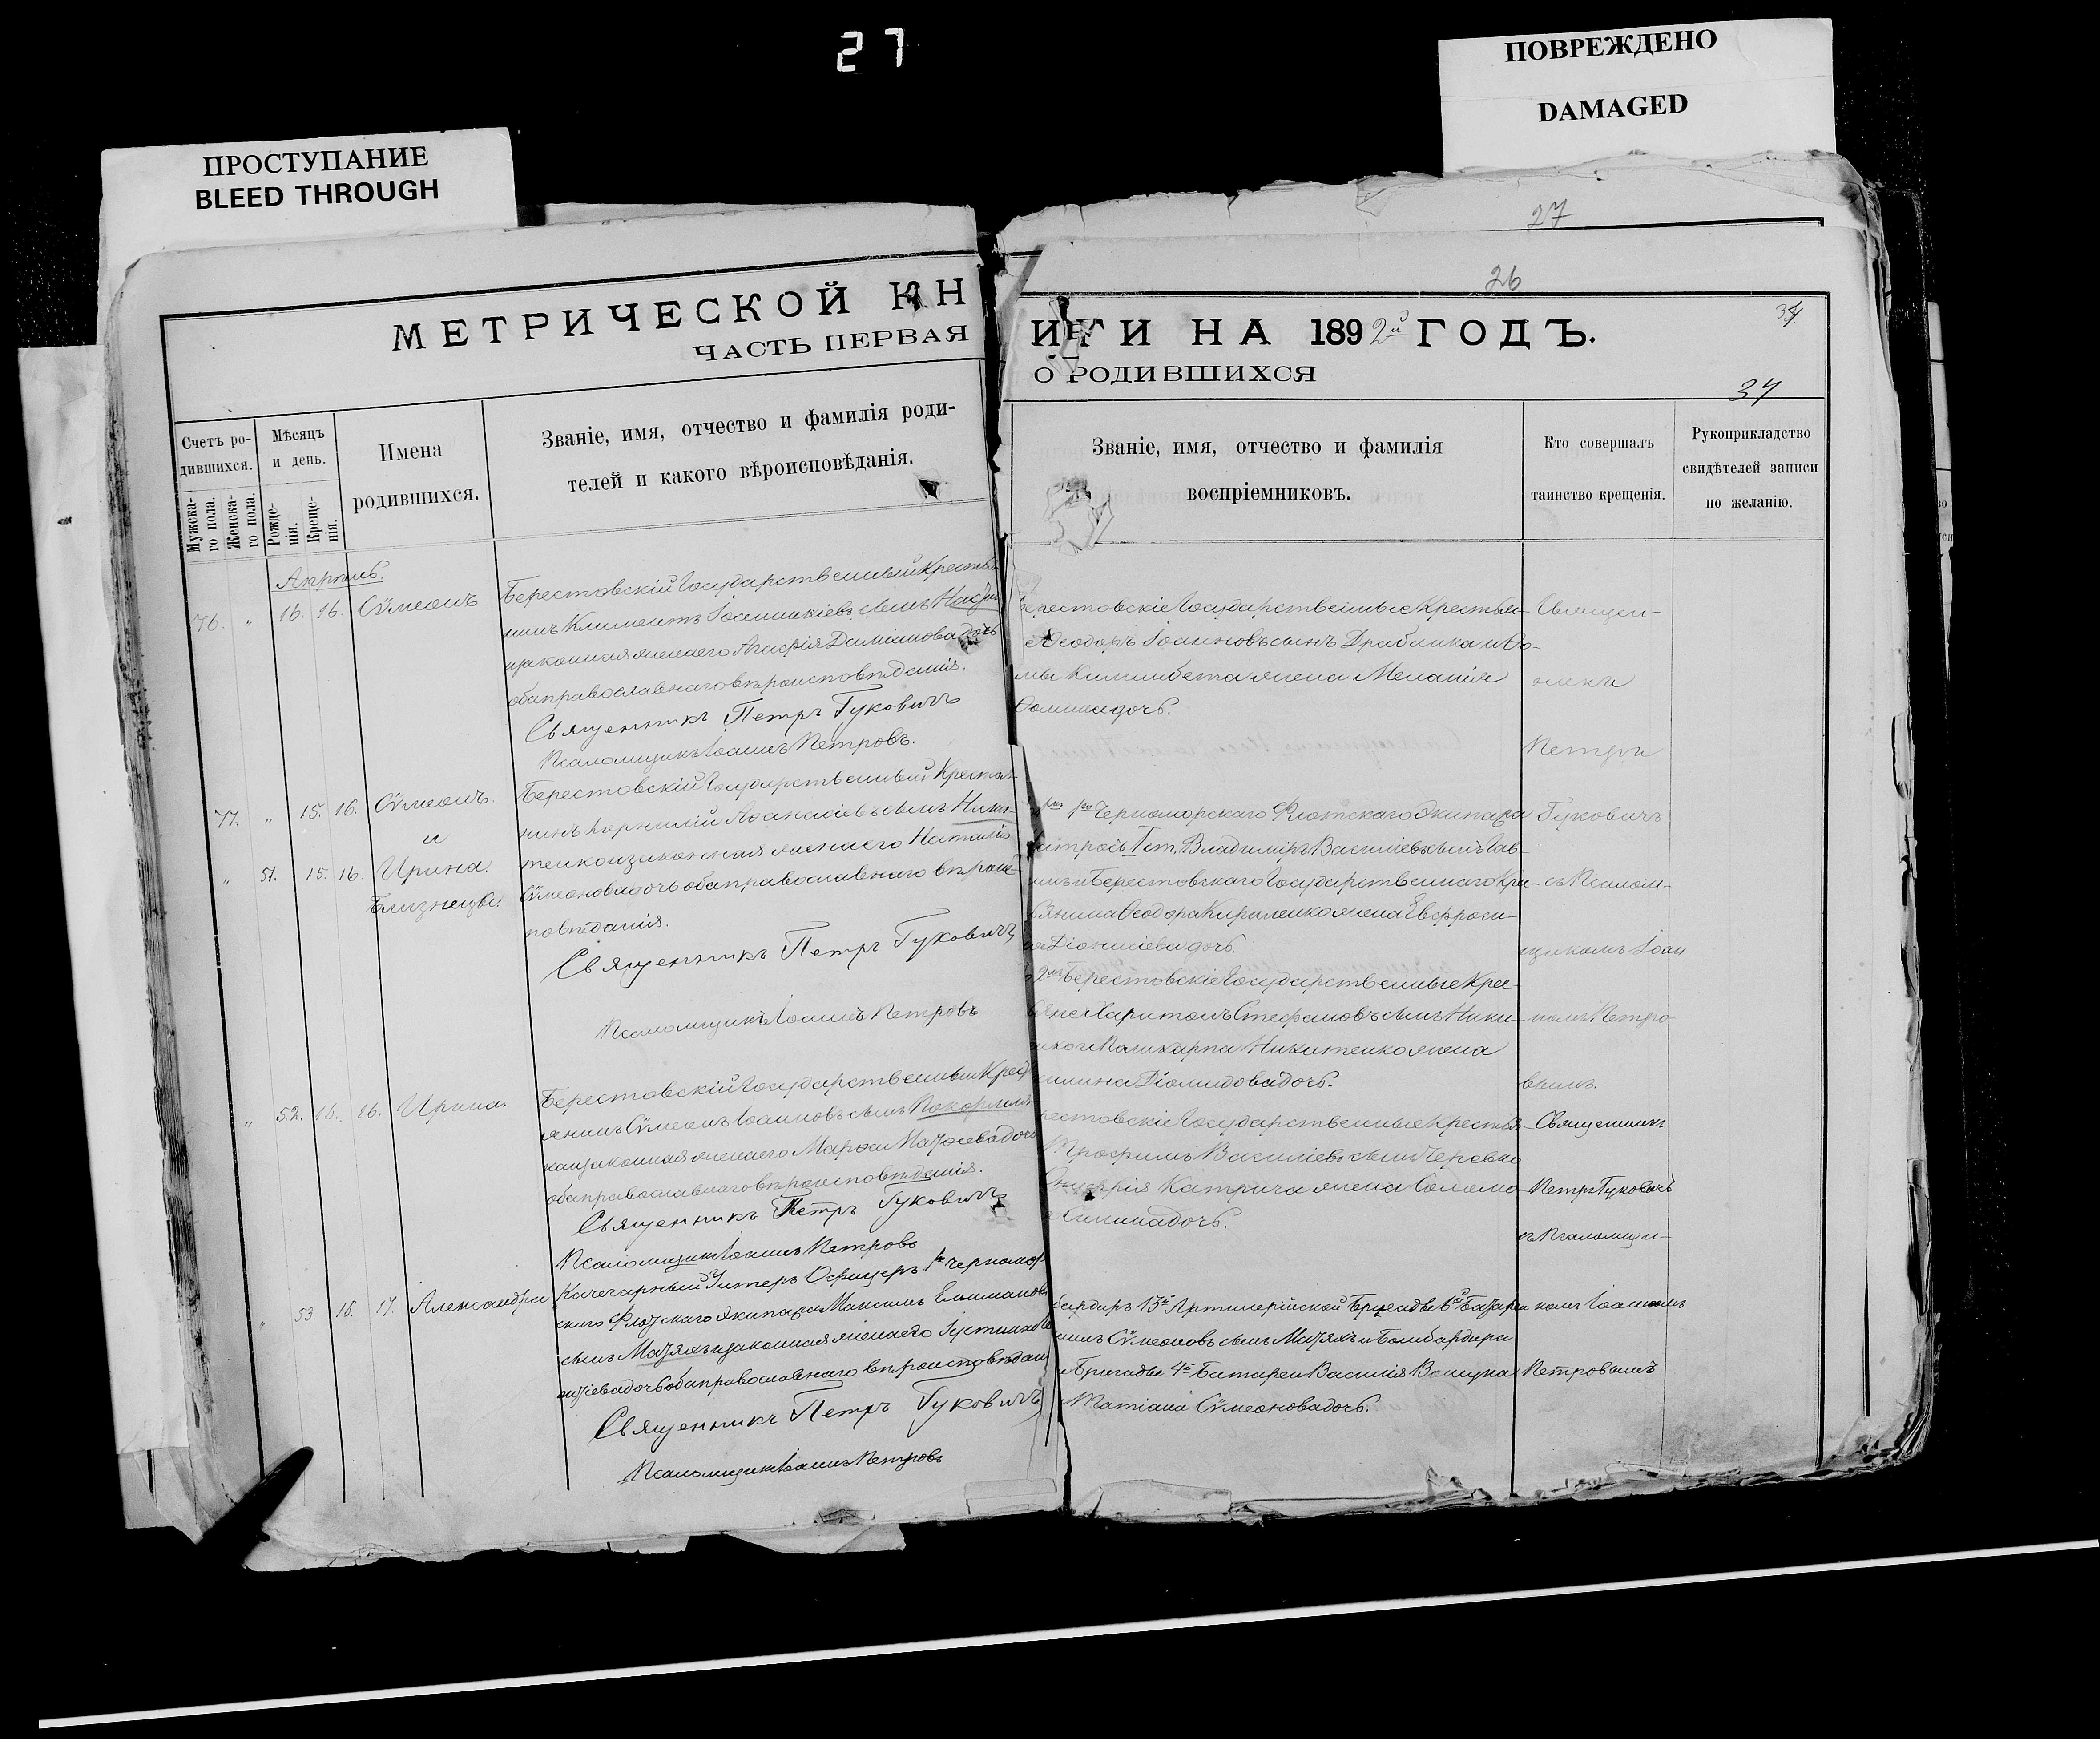 27
ПОВРЕЖДЕНО
DAMAGED
ПРОСТУПАНИЕ
BLEED THROUGH
27
26
МЕТРИЧЕСКОЙ КН
ИГИ НА 1892й ГОДЪ.
ЧАСТЬ ПЕРВАЯ
О РОДИВШИХСЯ
34
Счетъ ро-
дившихся.
Мужска-
го пола.
Женска-
го пола.
Мѣсяцъ
и день.
Рожде-
нія.
Креще-
нія.
Имена
родившихся.
Званіе, имя, отчество и фамилія роди-
телей и какого вѣроисповѣданія.
Званіе, имя, отчество и фамилія
воспріемниковъ.
Кто совершалъ
таинство крещенія.
Рукоприкладство
свидѣтелей записи
по желанію.
Апрѣль.
76. " 16. 16. Сѵмеонъ
Берестовскій Государственный Крестья
нинъ Климентъ Іоанникіевъ сынъ
и законная жена его Агафія Даміанова дочь
оба православнаго вѣроисповѣданія.
Священникъ Петръ Гуковичъ
Псаломщикъ Іоаннъ Петровъ.
Берестовскіе Государственные Крестья-
Ѳеодоръ Іоанновъ сынъ Драбинка и Ѳо-
мы жена Меланія
дочь.
77. " 15. 16. Сѵмеонъ.
и
" 51. 15. 16. Ирина.
Близнецы.
Берестовскій Государственный Крестья-
нинъ Корнилій Аѳанасіевъ сынъ Ники-
тенко и законная жена его Наталія
Сѵмеонова дочь оба православнаго вѣроис-
повѣданія.
Священникъ Петръ Гуковичъ
Псаломщикъ Іоаннъ Петровъ
1го Черноморскаго Флотскаго Экипажа
Матросъ 1 ст. Владиміръ Василіевъ сынъ Сав-
и Берестовскаго Государственнаго Кре-
стьянина Ѳеодора Кириленко жена Евфроси-
нія Діонисіева дочь.
2го Берестовскіе Государственные Крес-
тьяне Харитонъ Стефановъ сынъ Ники-
тенко и Поликарпа Никитенко жена
Діомидова дочь.
" 52. 15. 16. Ирина.
Берестовскій Государственный Крест
янинъ Сѵмеонъ Іоанновъ сынъ
ка и законная жена его Марѳа Матѳіева дочь
оба православнаго вѣроисповѣданія.
Священникъ Петръ Гуковичъ
Псаломщикъ Іоаннъ Петровъ
рестовскіе Государственные Крестья-
Трофимъ Василіевъ сынъ Черевко
Онуфрія Катрича жена Соломо-
дочь.
" 53. 16. 17. Александра
Кочегарный Унтеръ Офицеръ 1го Черномор
скаго Флотскаго Экипажа Максимъ
сынъ Мазяхъ и законная жена его Іустина
дочь оба православнаго вѣроисповѣдан
Священникъ Петръ Гуковичъ
Псаломщикъ Іоаннъ Петровъ
бардиръ 13й Артилерійской Бригады 6й Батареи
Сѵмеоновъ сынъ Мазяхъ и Бомбардира
Бригады 4й Батареи Василія
Татіана Сѵмеонова дочь.
Священ-
никъ
Петръ
Гуковичъ
съ Псалом-
щикомъ Іоан
номъ Петро
вымъ.
Священникъ
Петръ Гуковичъ
съ Псаломщи-
комъ Іоанномъ
Петровымъ